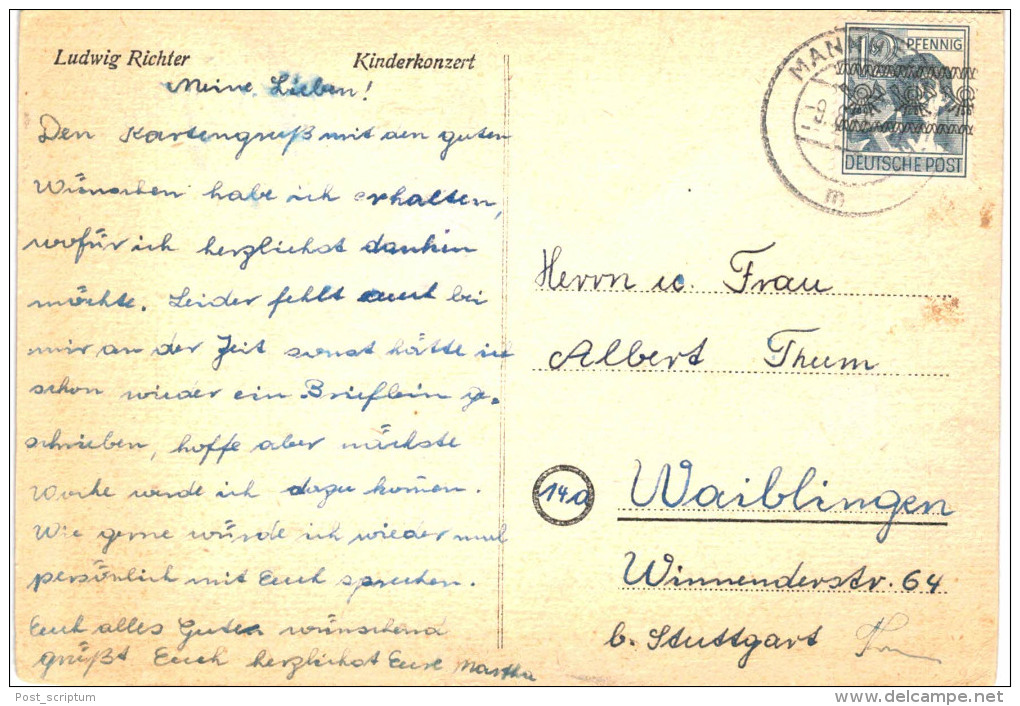 Ludwig Richter Kinderkonzert
Meine Lieben!
Den Kartengruß mit den guten
Wünschen habe ich erhalten,
wofür ich herzlichst danken
möchte. Leider fehlt auch bei
mir an der Zeit sonst hätte ich
schon wieder ein Brieflein ge-
schrieben, hoffe aber nächste
Woche werde ich dazu kommen.
Wie gerne würde ich wieder mal
persönlich mit Euch sprechen.
Euch alles Gute wünschend
grüßt Euch herzlichst Eure Martha
12 PFENNIG
DEUTSCHE POST
MANNHEIM
9.
m
Herrn u. Frau
Albert Thum
14a Waiblingen
Winnenderstr. 64
b. Stuttgart
Post_scriptum
delcampe.net